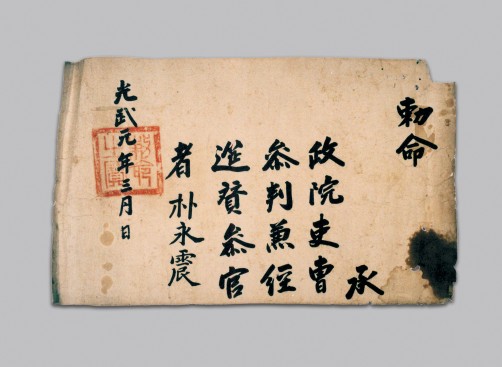 勅命
承
政院吏曹
叅判兼經
叅官
者朴永震
光武元年三月日